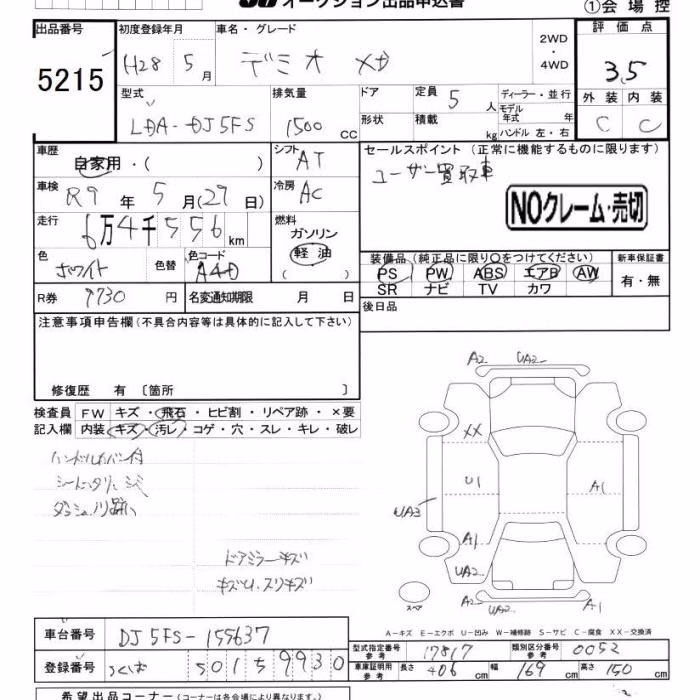 オークション出品申込書
①会場控
出品番号 初度登録年月 車名・グレード 評価点
5215 H28 5月 デミオ XD 2WD・4WD 3.5
型式 排気量 ドア 定員 5人 ディーラー・並行 外装 内装
LDA-DJ5FS 1500 cc 形状 積載 kg モデル年式 年 ハンドル 左・右 C C
車歴 自家用・( ) シフト AT セールスポイント (正常に機能するものに限ります)
車検 R9年5月(29日) 冷房 AC ユーザー買取車
NOクレーム・売切
走行 6万4千556km 燃料 ガソリン 軽油 ( )
色 ホワイト 色替 色コード A4D
装備品 (純正品に限り○をつけてください) 新車保証書
PS PW ABS エアB AW 有・無
SR ナビ TV カワ
R券 9730円 名変通知期限 月 日 後日品
注意事項申告欄 (不具合内容等は具体的に記入して下さい)
修復歴 有 〔箇所 〕
検査員 FW キズ・飛石・ヒビ割・リペア跡・×要
記入欄 内装 キズ・汚レ・コゲ・穴・スレ・キレ・破レ
A2 UA2
XX
U1 A1
UA3
A1
UA2
A2 UA2 A1
スペア
ドアミラーキズ
A-キズ E-エクボ U-凹み W-補修跡 S-サビ C-腐食 XX-交換済
車台番号 DJ5FS-155637
登録番号 つくば 501 ち 9930
型式指定番号 参考 17817 類別区分番号 参考 0052
車庫証明用 参考 長さ 406cm 幅 169cm 高さ 150cm
希望出品コーナー (コーナーは各会場により異なります。)